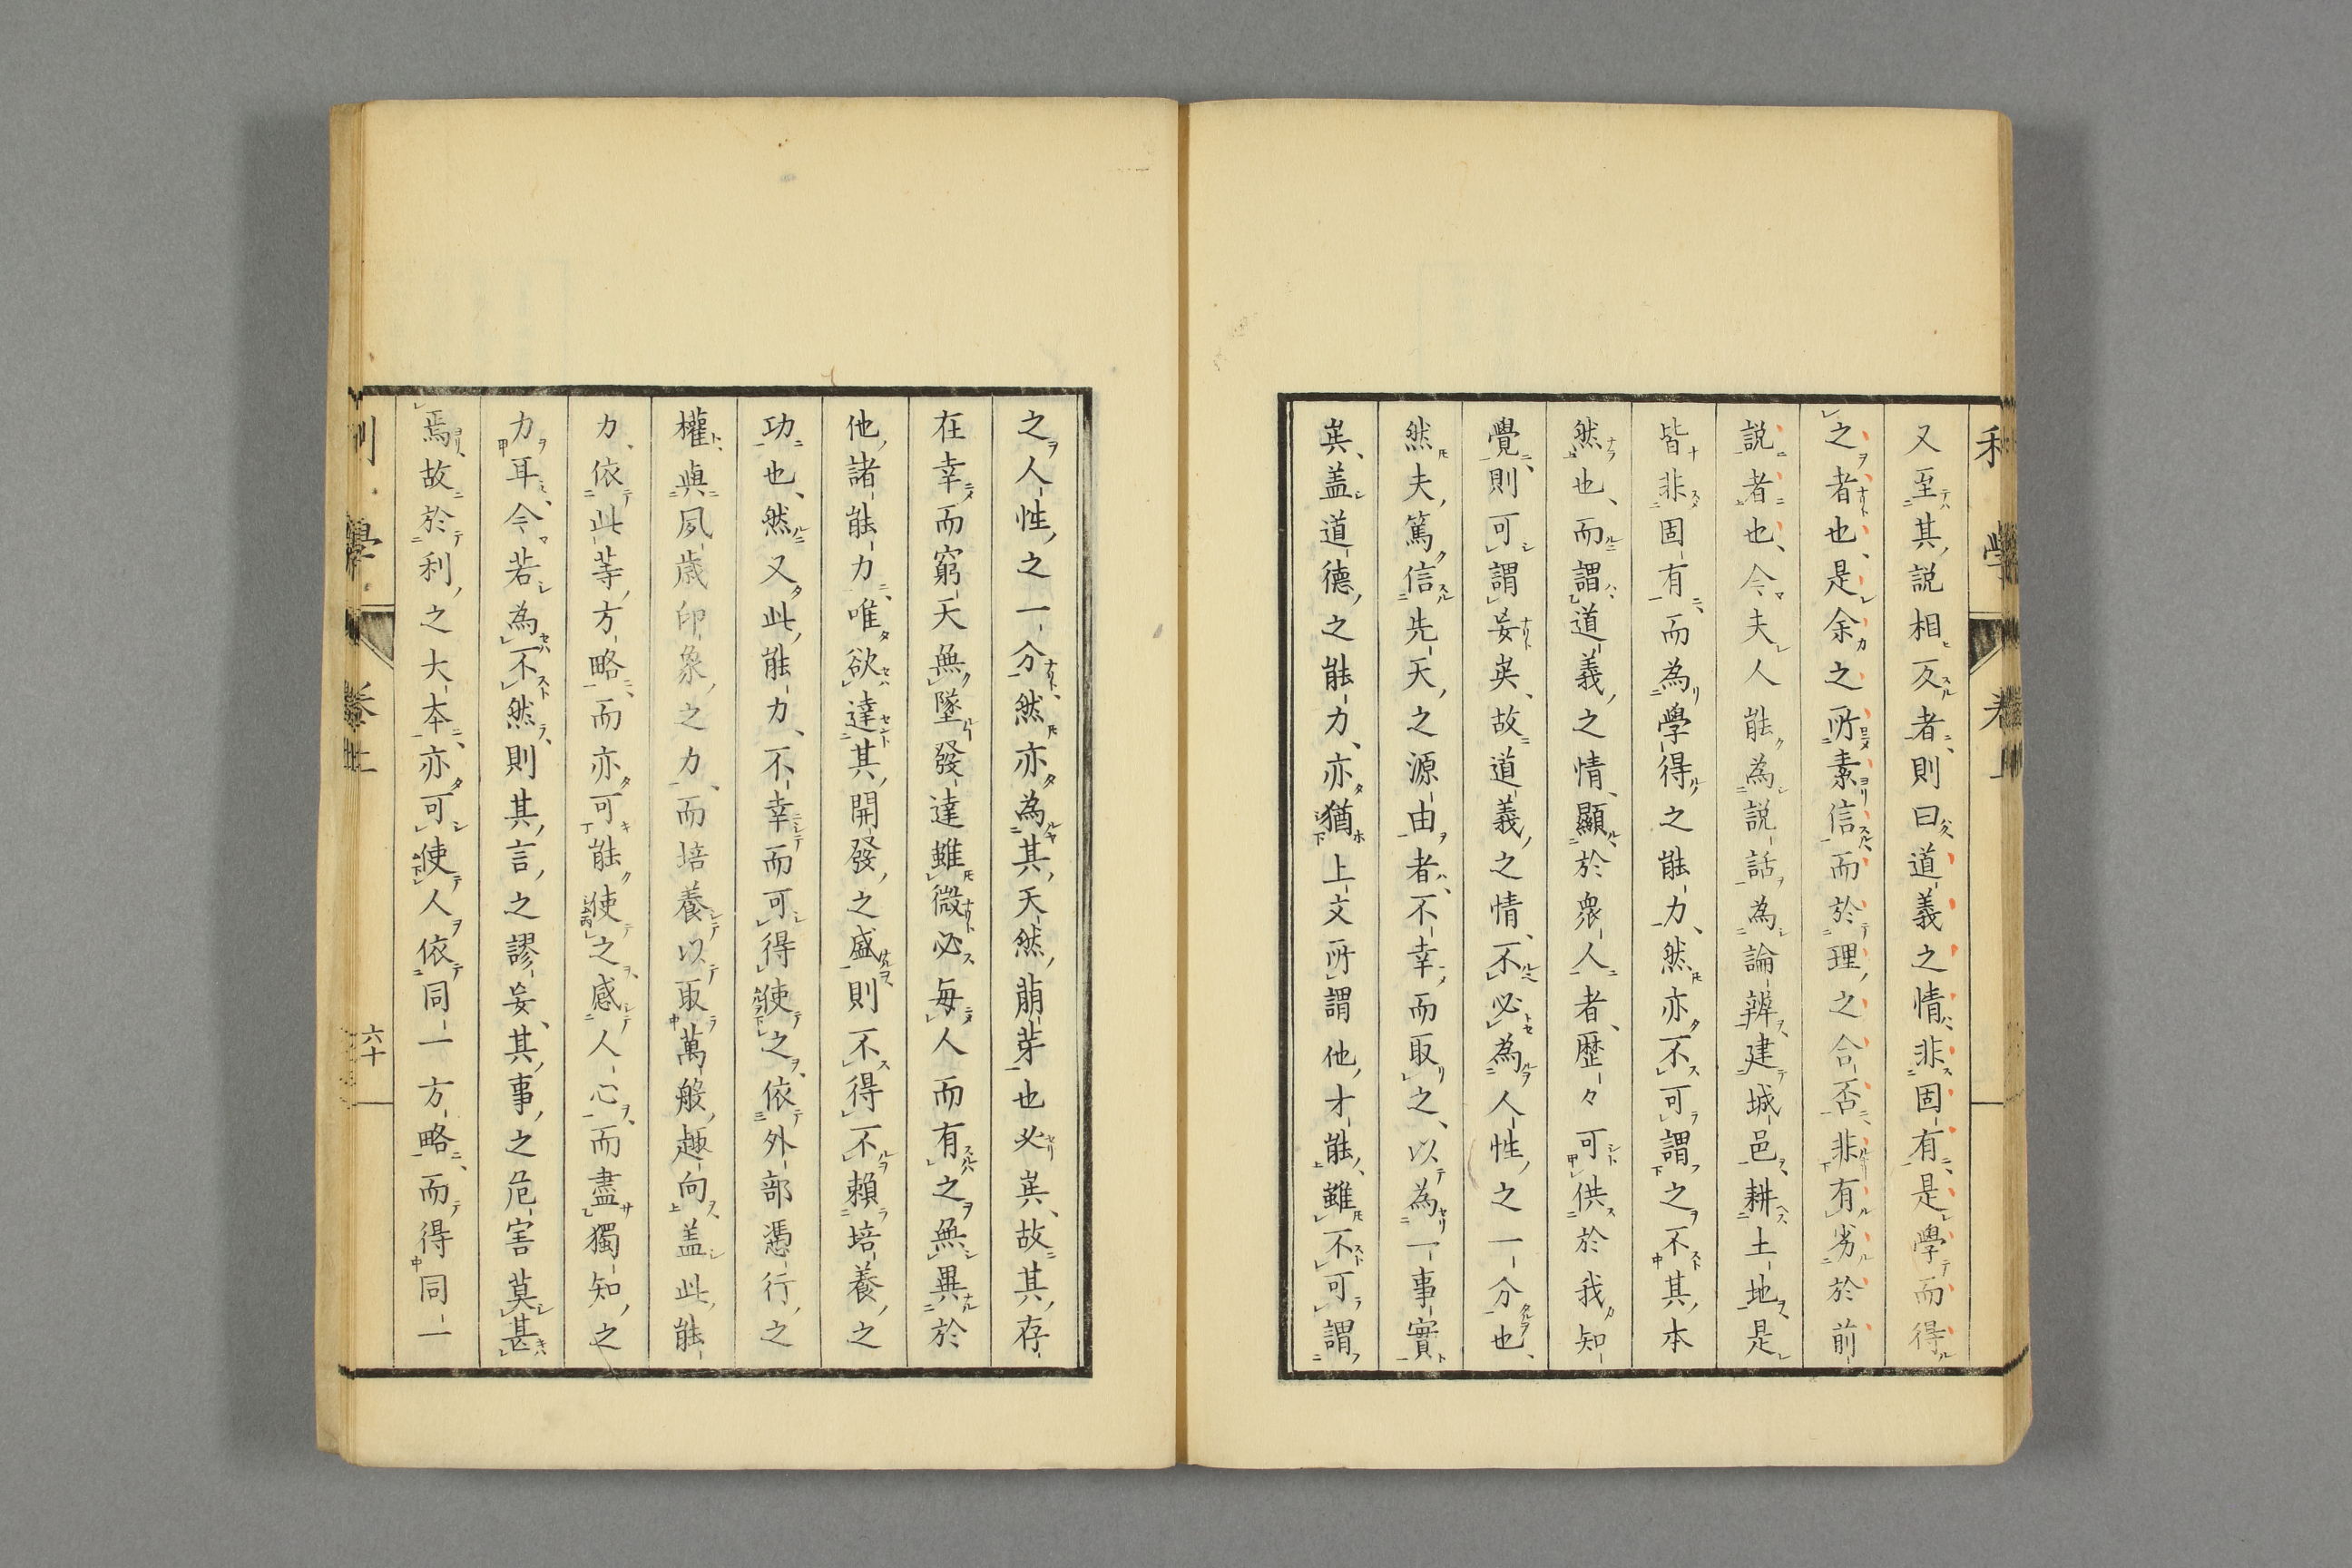 利學 卷上
又至其説相反者則曰道義之情非固有是學而得
之者也是余之所素信而於理之合否非有劣於前
説者也今夫人能為説話為論辨建城邑耕土地是
皆非固有而為學得之能力然亦不可謂之不其本
然也而謂道義之情顯於衆人者歴々可供於我知
覺則可謂妄矣故道義之情不必為人性之一分也
然夫篤信先天之源由者不幸而取之以為一事實
矣盖道德之能力亦猶上文所謂他才能雖不可謂
之人性之一分然亦為其天然萠芽也必矣故其存
在幸而窮天無墜發達雖微必毎人而有之無異於
他諸能力唯欲達其開發之盛則不得不賴培養之
功也然又此能力不幸而可得使之依外部憑行之
權與夙歳印象之力而培養以取萬般趣向盖此能
力依此等方略而亦可能使之感人心而盡獨知之
力耳今若為不然則其言之謬妄其事之危害莫甚
焉故於利之大本亦可使人依同一方略而得同一
利學 卷上
六十